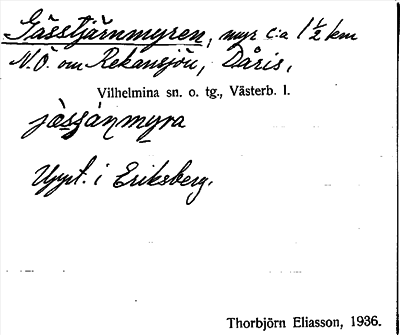 Gässtjärnmyren, myr c:a 1 ½ km
N.Ö. om Rekansjön, Dåris,
Vilhelmina sn. o. tg., Västerb. l.
jässjänmyra
Uppt. i Eriksberg.
Thorbjörn Eliasson, 1936.